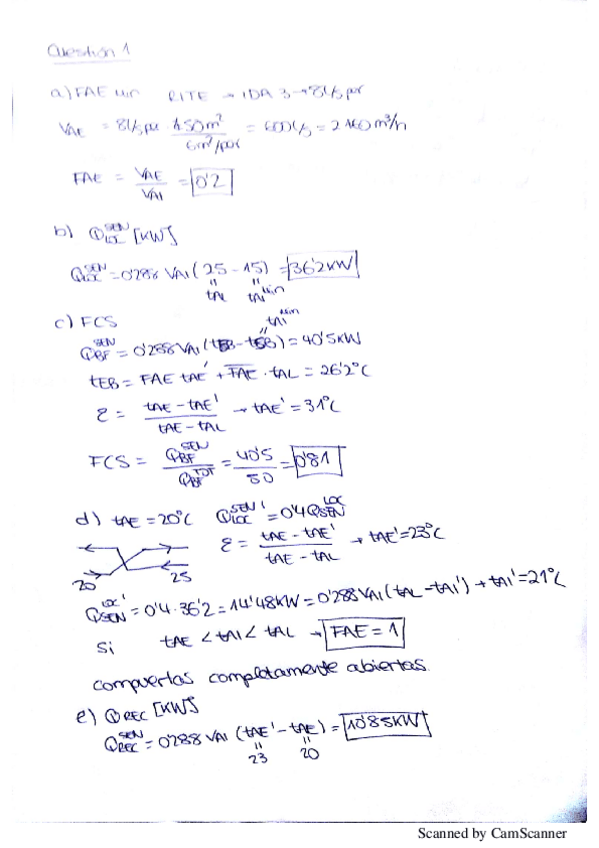 Question 1
a) FAE min RITE → IDA 3 → 8l/s per
VAE = 8l/s per 450m² / 6m²/per = 600l/s = 2160m³/h
FAE = VAE / VAI = 0'2
b) Q SEN LOC [KW]
Q SEN LOC = 0'288 VAI (25 - 15) = 36'2KW
" tAL " tAI min
c) FCS
" tAI min
Q SEN BF = 0'288 VAI (tEB - tSB) = 40'5KW
tEB = FAE tAE' + FAE · tAL = 26'2°C
Ɛ = tAE - tAE' / tAE - tAL → tAE' = 31°C
FCS = Q SEN BF / Q TOT BF = 40'5 / 50 = 0'81
d) tAE = 20°C Q SEN LOC ' = 0'4 Q LOC SEN
Ɛ = tAE - tAE' / tAE - tAL → tAE' = 23°C
20 25
Q LOC SEN ' = 0'4 · 36'2 = 14'48KW = 0'288 VAI (tAL - tAI') → tAI' = 21°C
Si tAE < tAI < tAL → FAE = 1
compuertas completamente abiertas.
e) QREC [KW]
Q SEN REC = 0'288 VAI (tAE' - tAE) = 10'85KW
" 23 " 20
Scanned by CamScanner